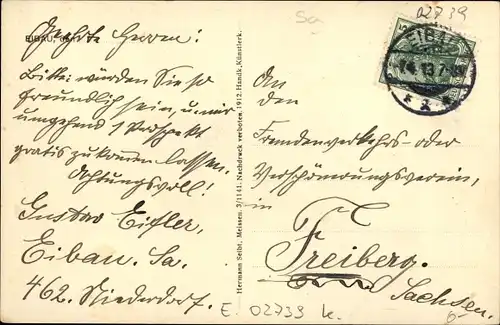 02739
Sa
EIBAU,
EIBAU
14 13 7
Geehrte Herren!
Bitte würden Sie so
freundlich sein, u. mir
umgehend 1 Prospekt
gratis zukommen lassen.
Achtungsvoll!
Gustav
Eibau. Sa.
462. Niederdorf.
Hermann Seibt, Meissen. 3/1141. Nachdruck verboten. 1912. Handk. Künstlerk.
An
den
Fremdenverkehrs- oder
Verschönerungsverein,
in
Freiberg.
Sachsen.
E. 02739 k.